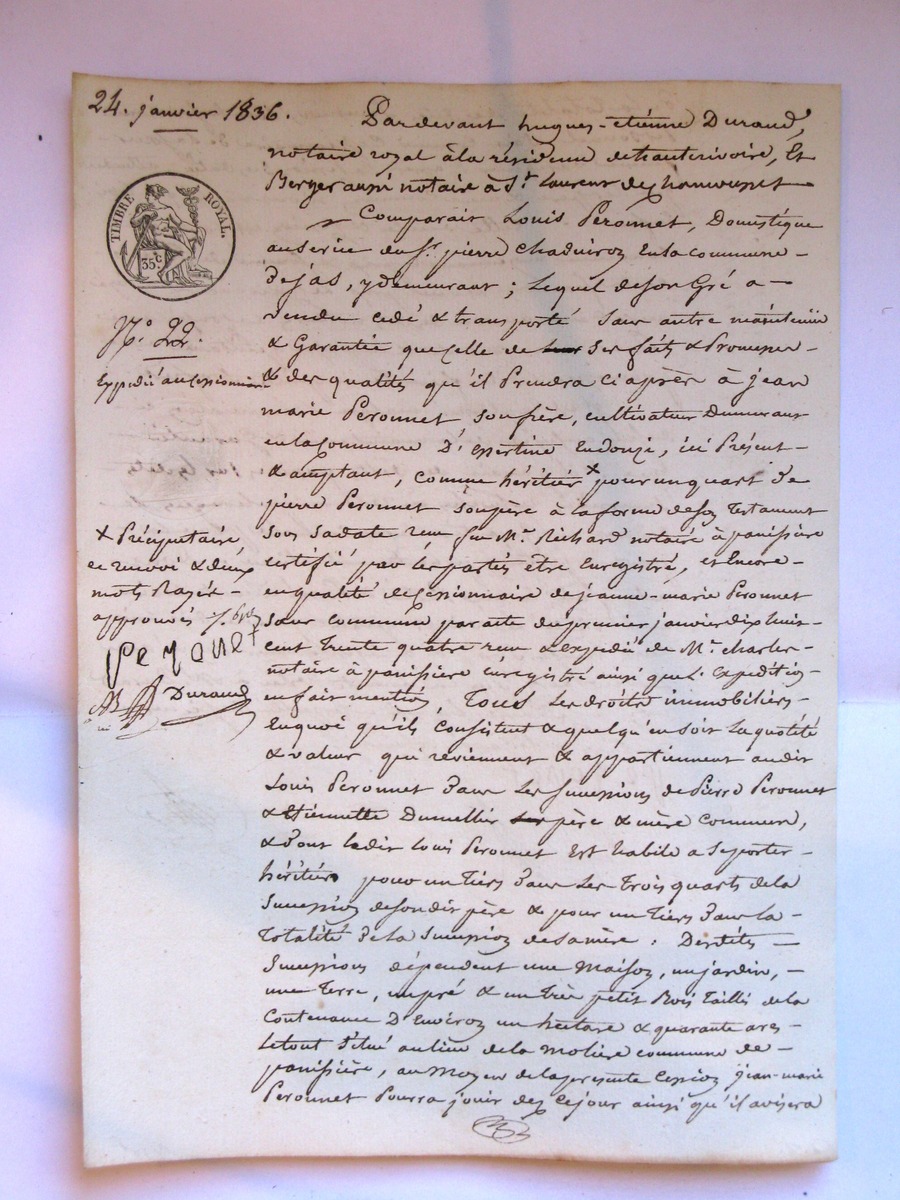 24. janvier 1836.
Pardevant hugues-etiénne Durand,
notaire royal à la résidence de hauterivoire, Et
Berger aussi notaire à St. Laurent de chamousset
TIMBRE ROYAL.
35 c
Comparait Louis Peronnet, Domestique
au Service du Sr. pierre Chaduiroz En la commune
de jas, y demeurant ; Lequel de son Gré a
vendu cedé & transporté Sans autre maintenüe
& Garantie que celle de ses faits & Promesses
N.o 22.
Expedié au cessionnaire
& des qualités qu'il Prendra ci après à jean
marie Peronnet son frère, cultivateur demeurant
en la commune D'Epertine Endonzi, ici Présent
& acceptant, comme héritier x pour un quart de
pierre Peronnet son père à la forme de son Testament
sous sa date reçu par Me. Richard notaire à panissière
certifié par les parties être Enregistré, et Encore
en qualité de cessionnaire de jeanne-marie Peronnet
sœur commune par acte du premier janvier dix huit
cent Trente quatre reçu & expedié de Me. charles
notaire à panissière Enregistré ainsi que l'Expedition
en fait mention, Tous Les droits immobiliers
En quoi qu'ils Consistent & quelqu'en soit la quotité
& valeur qui reviennent & appartiennent audit
Louis Peronnet dans Les successions de Pierre Peronnet
& Etiennette Dumellier père & mère communs,
& dont ledit Louis Peronnet Est habile a se porter
héritier pour un Tiers dans Les Trois quarts de la
Succession de son dit père & pour un Tiers dans la
Totalité de la Succession de sa mère : Desdites
Successions dépendent une Maison, un jardin,
une Terre, un pré & un Très petit Bois Taillis de la
Contenance D'Environ un hectare & quarante ares
Le tout Situé au lieu de la Molière commune de
panissière, au Moyen de la présente Cession jean-marie
Peronnet Pourra jouir dès ce jour ainsi qu'il avisera
x Précipuitaire
ce renvoi & deux
mots Rayés
approuvés
Peronet
Durand